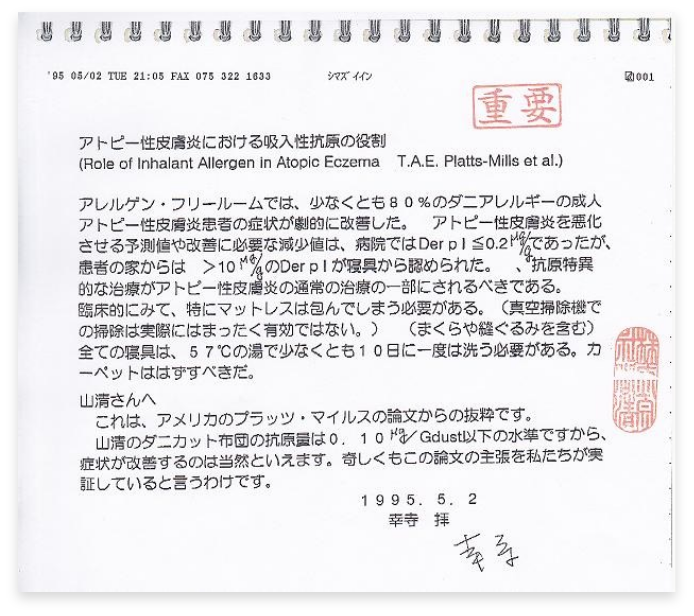 '95 05/02 TUE 21:05 FAX 075 322 1633 ｼﾏｽﾞｲｲﾝ 001
重要
アトピー性皮膚炎における吸入性抗原の役割
(Role of Inhalant Allergen in Atopic Eczema T.A.E. Platts-Mills et al.)
アレルゲン・フリールームでは、少なくとも８０％のダニアレルギーの成人
アトピー性皮膚炎患者の症状が劇的に改善した。 アトピー性皮膚炎を悪化
させる予測値や改善に必要な減少値は、病院ではDer p I ≦0.2μg/gであったが、
患者の家からは ＞10 μg/gのDer p I が寝具から認められた。 、抗原特異
的な治療がアトピー性皮膚炎の通常の治療の一部にされるべきである。
臨床的にみて、特にマットレスは包んでしまう必要がある。（真空掃除機で
の掃除は実際にはまったく有効ではない。） （まくらや縫ぐるみを含む）
全ての寝具は、５７℃の湯で少なくとも１０日に一度は洗う必要がある。カ
ーペットははずすべきだ。
山清さんへ
これは、アメリカのプラッツ・マイルスの論文からの抜粋です。
山清のダニカット布団の抗原量は０．１０μg/Gdust以下の水準ですから、
症状が改善するのは当然といえます。奇しくもこの論文の主張を私たちが実
証していると言うわけです。
１９９５．５．２
幸寺 拝
幸寺